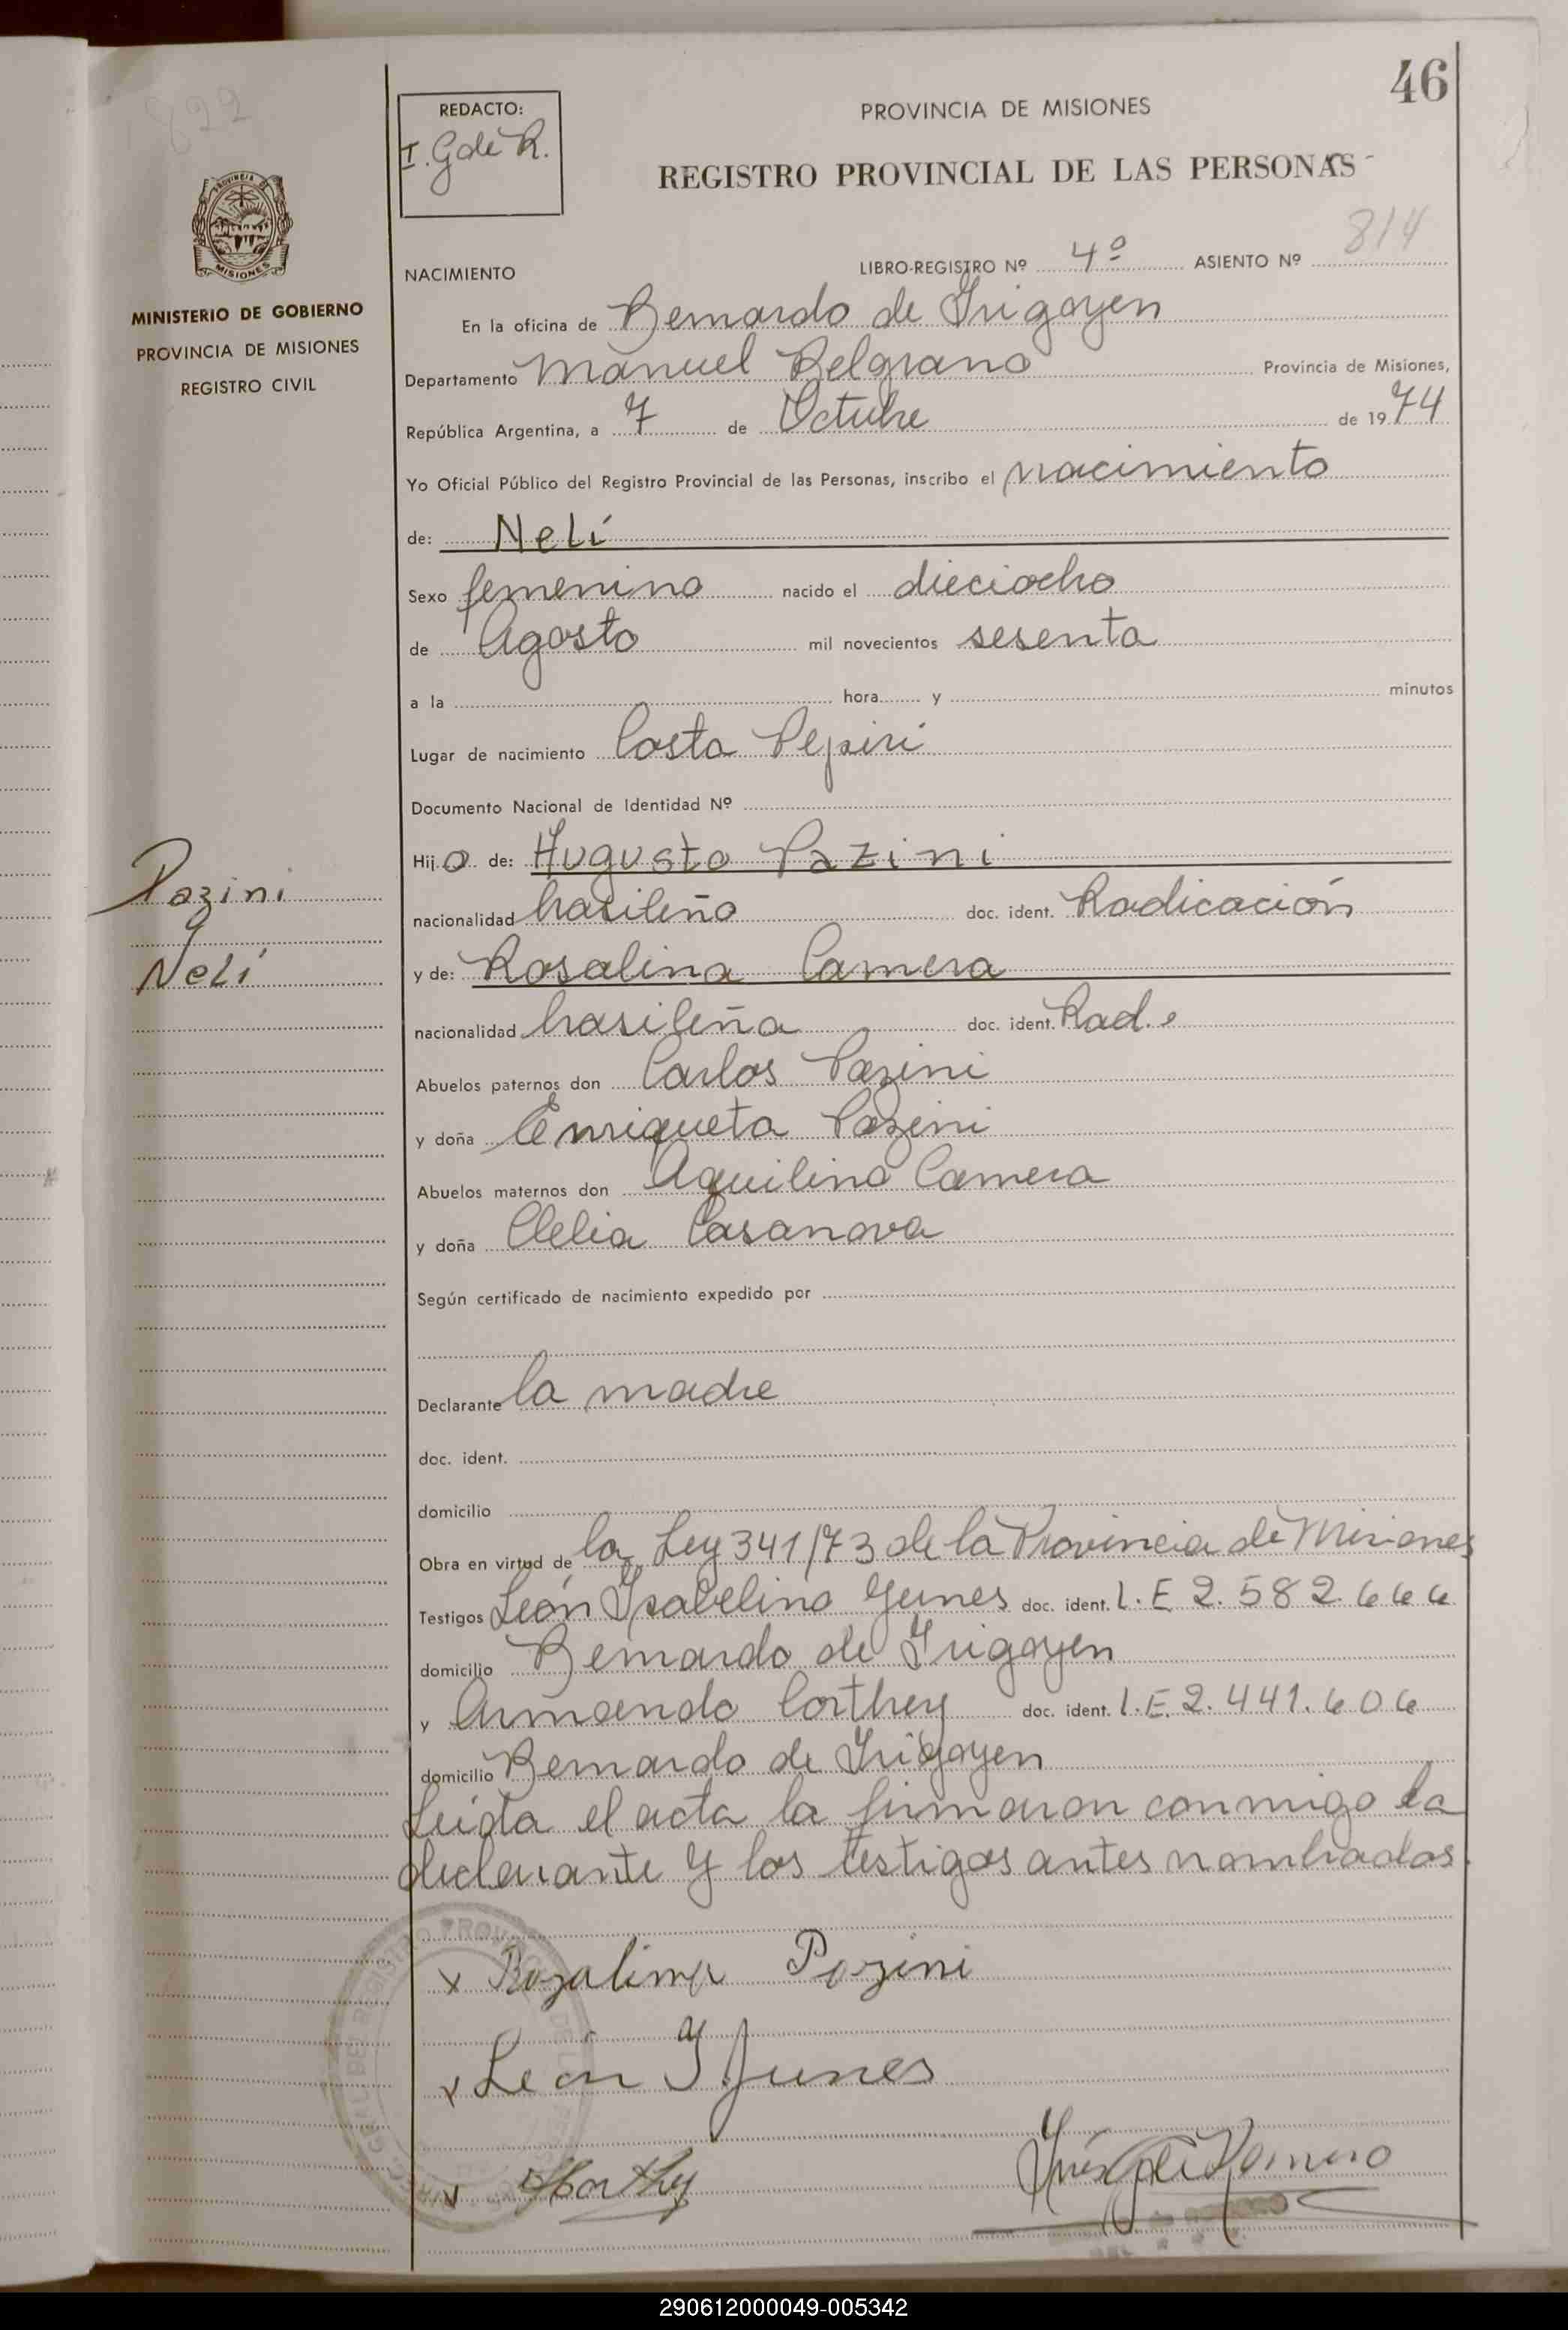 46
822
REDACTO:
I. G de R.
PROVINCIA DE MISIONES
REGISTRO PROVINCIAL DE LAS PERSONAS
MISIONES
MINISTERIO DE GOBIERNO
PROVINCIA DE MISIONES
REGISTRO CIVIL
814
NACIMIENTO LIBRO-REGISTRO Nº 4º ASIENTO Nº
En la oficina de Bernardo de Irigoyen
Departamento Manuel Belgrano Provincia de Misiones,
República Argentina, a 7 de Octubre de 1974
Yo Oficial Público del Registro Provincial de las Personas, inscribo el nacimiento
de: Nelí
Sexo femenino nacido el dieciocho
de Agosto mil novecientos sesenta
a la hora y minutos
Lugar de nacimiento Costa Pepiri
Documento Nacional de Identidad Nº
Hijo de: Augusto Pazini
Pazini
nacionalidad brasileño doc. ident. Radicación
Nelí
y de: Rosalina Camera
nacionalidad brasileña doc. ident. Rad.
Abuelos paternos don Carlos Pazini
y doña Enriqueta Pazini
Abuelos maternos don Aquilino Camera
y doña Clelia Casanova
Según certificado de nacimiento expedido por
Declarante la madre
doc. ident.
domicilio
Obra en virtud de la Ley 341/73 de la Provincia de Misiones
Testigos León Ysabelino Yunes doc. ident. L.E 2.582.666
domicilio Bernardo de Irigoyen
y Armando Corthey doc. ident. L.E. 2.441.606
domicilio Bernardo de Irigoyen
Leída el acta la firmaron conmigo la
declarante y los testigos antes nombrados.
x Rozalima Pozini
x León Y Junes
x Corthey
Inés G de Romero
290612000049-005342